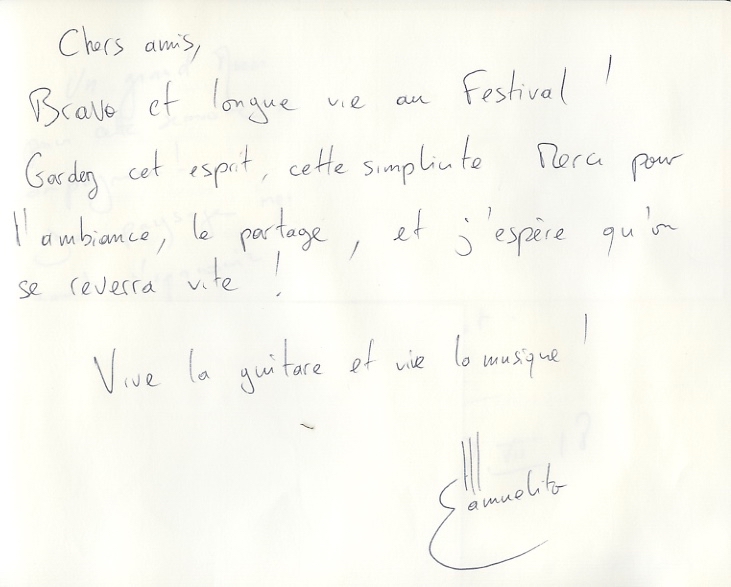 Chers amis,
Bravo et longue vie au Festival !
Gardez cet esprit, cette simplicité Merci pour
l'ambiance, le partage, et j'espère qu'on
se reverra vite !
Vive la guitare et vive la musique !
Samuelito